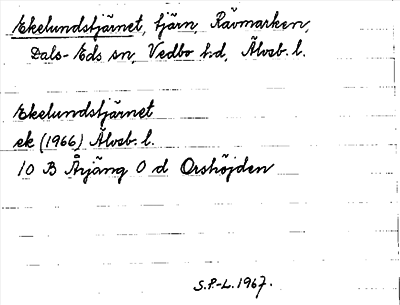 Ekelundstjärnet, tjärn, Rävmarken,
Dals-Eds sn, Vedbo hd, Älvsb. l.
Ekelundstjärnet
ek (1966) Älvsb. l.
10 B Årjäng 0 d Orshöjden
S.P-L. 1967.